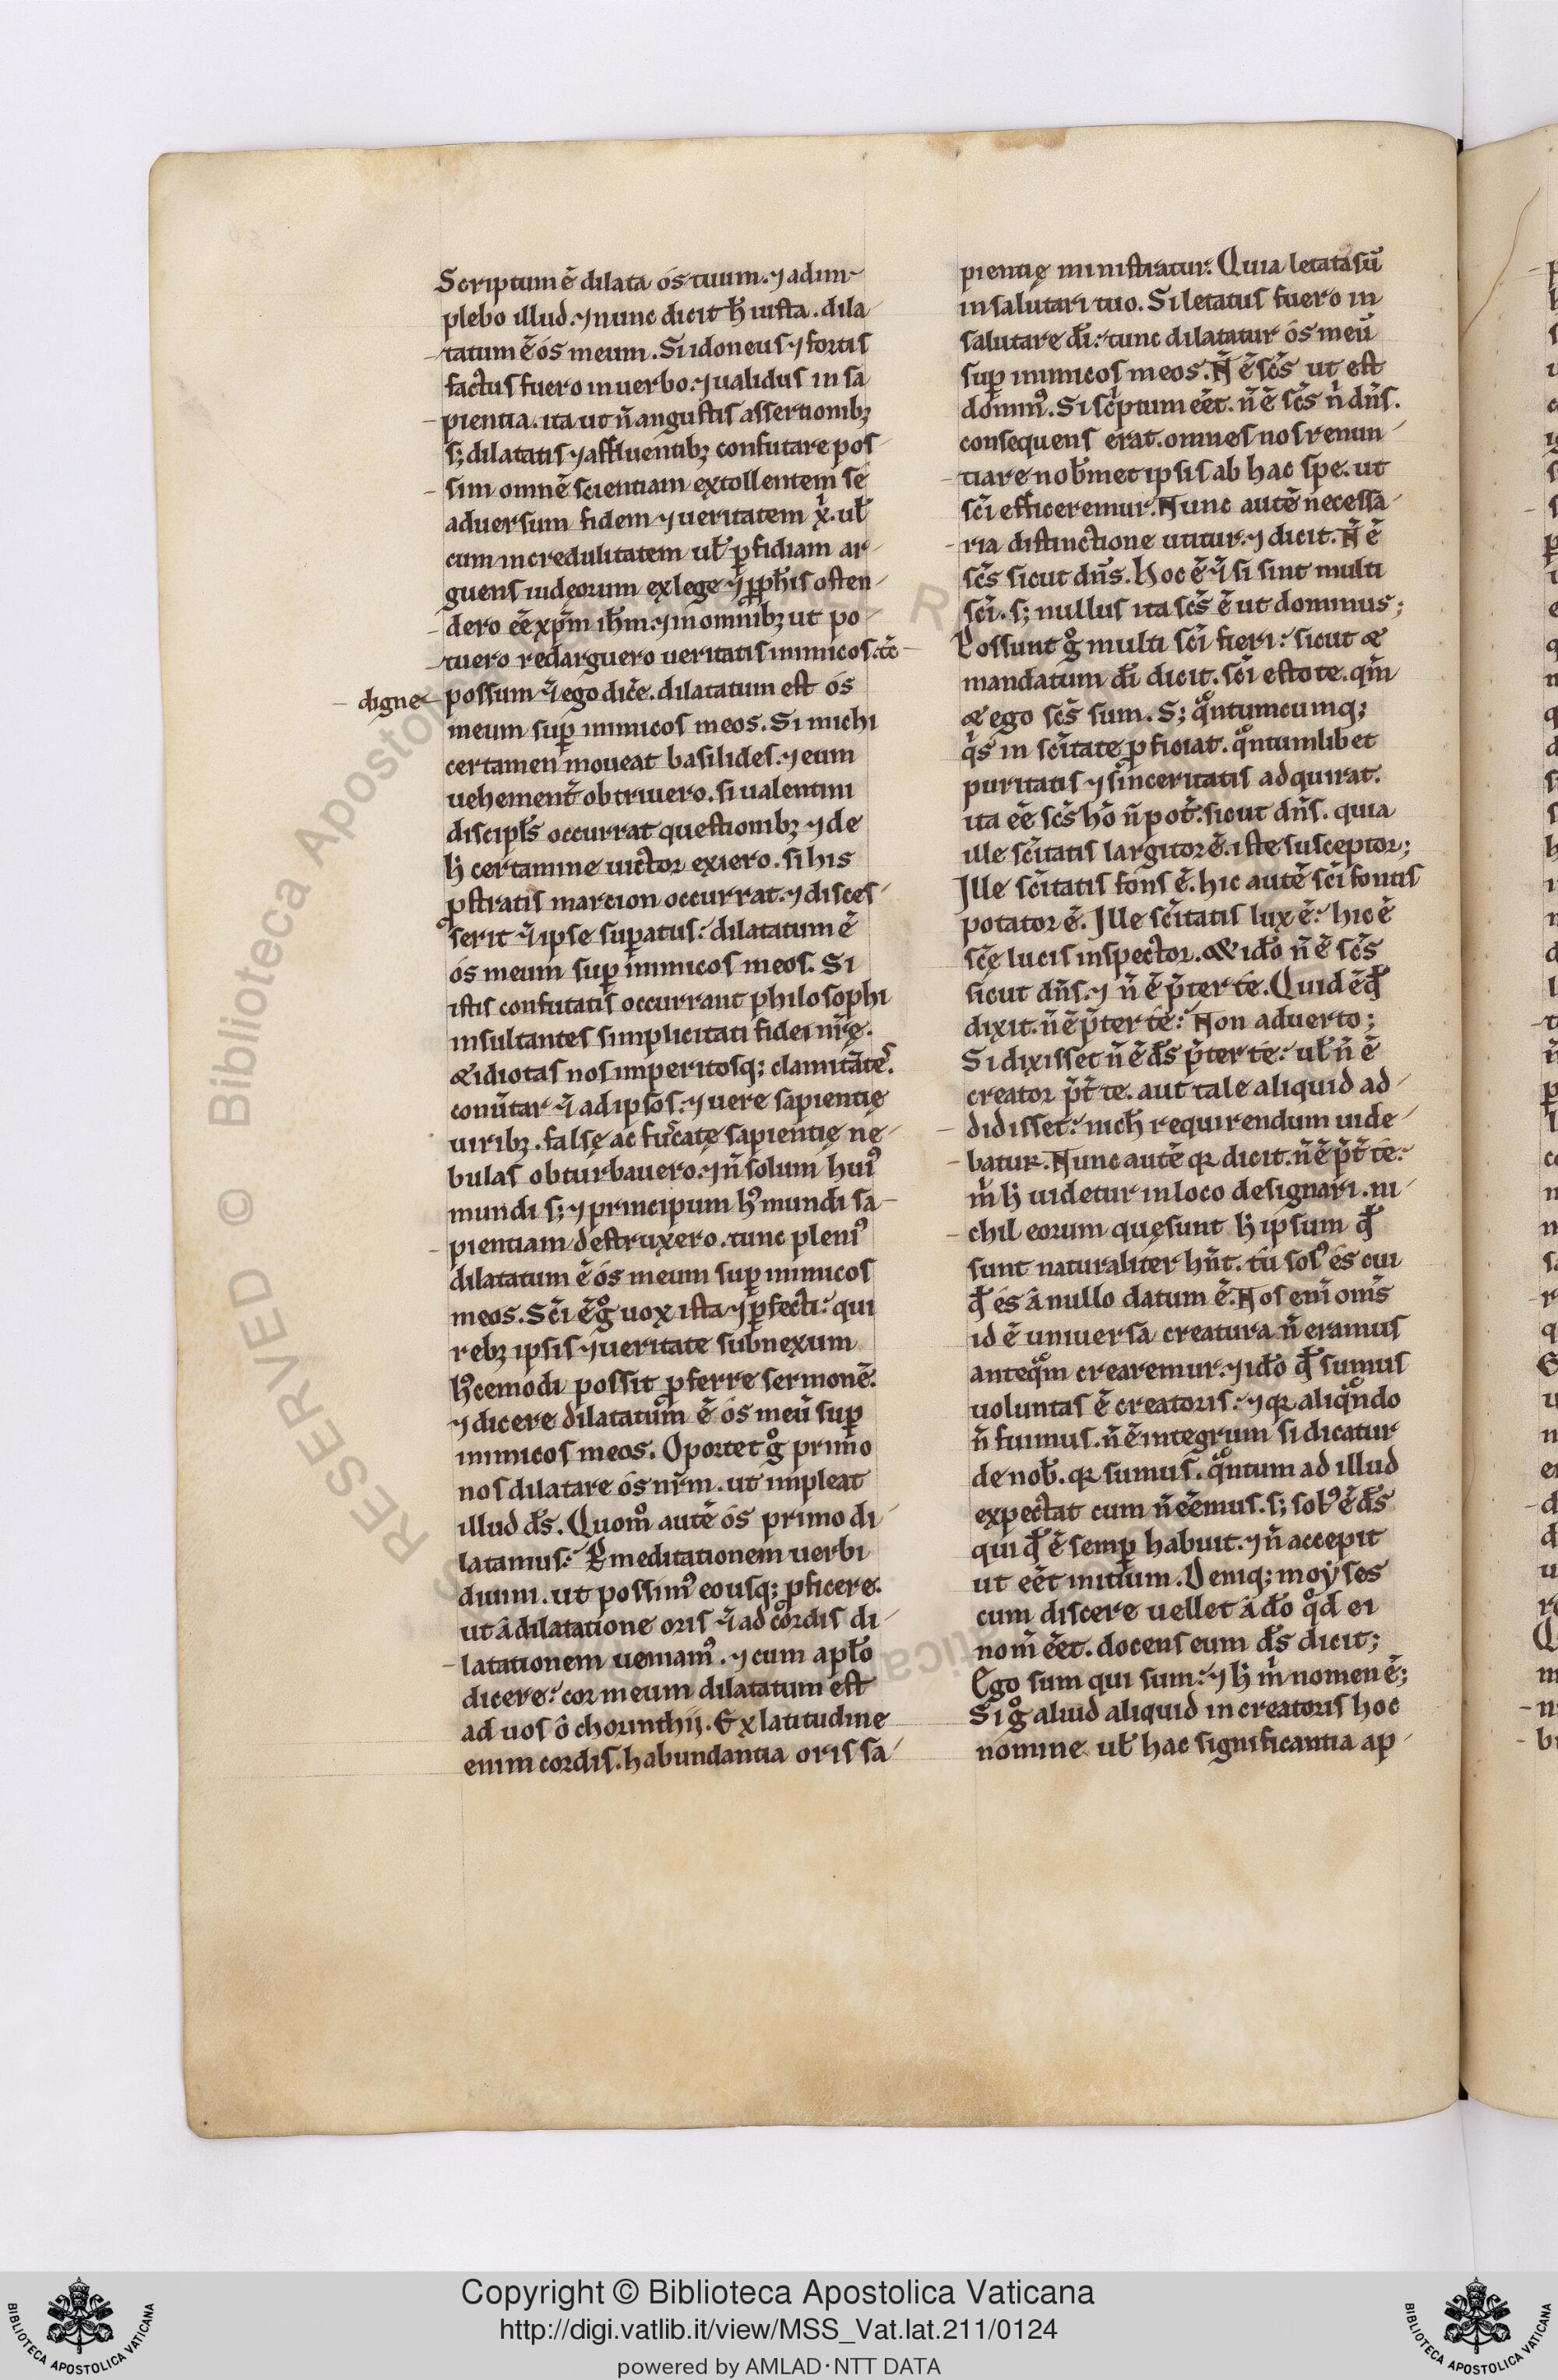 Scriptum ē dilata ós tuum. ⁊ adim-
plebo illud. ⁊ nunc dicit h̄ iusta. dila-
tatum ē ós meum. Si idoneus ⁊ fortis
factus fuero in uerbo. ⁊ ualidus in sa
pientia. ita ut n̄ angustis assertionibꝫ
s; dilatatis ⁊ affluentibꝫ confutare pos-
sim omnē scientiam extollentem sé
aduersum fidem ⁊ ueritatem x̓. ul̄
cum incredulitatem ul̄ ꝑfidiam ar-
guens iudeorum ex lege ⁊ ꝓph̄is osten-
dero eē xp̄m ih̄m. ⁊ in omnibꝫ ut po-
tuero redarguero ueritatis inimicos. tc̄
digne possum ⁊̄ ego dic̄e. dilatatum est ós
meum suꝑ inimicos meos. Si michi
certamen moueat basilides. ⁊ eum
uehement̄ obtriuero. si ualentini
discipl̄s occurrat questionibꝫ ⁊ de
h̓ certamine uictor exiero. si his
ꝓstratis marcion occurrat. ⁊ disces-
serit ⁊̄ ipse suꝑatus: dilatatum ē
ós meum suꝑ inimicos meos. Si
istis confutatis occurrant philosophi
insultantes simplicitati fidei nr̄ę.
& idiotas nos imperitosq; clamitātes.
conūtar ⁊̄ ad ipsos. ⁊ uere sapientię
uiribꝫ. falsę ac fucatę sapientię ne-
bulas obturbauero. ⁊ n̄ solum hui᾽
mundi s; ⁊ principum h᾽ mundi sa-
pientiam destruxero. tunc pleni᾽
dilatatum ē ós meum suꝑ inimicos
meos. Sc̄i ē gͦ uox ista ⁊ ꝑfecti: qui
rebꝫ ipsis ⁊ ueritate subnexum
h᾽cemodi possit ꝓferre sermonē.
⁊ dicere dilatatum ē ós meū suꝑ
inimicos meos. Oportet gͦ primo
nos dilatare ós nr̄m. ut impleat
illud d̄s. Quomͦ autē ós primo di-
latamus: Ꝑ meditationem uerbi
diuini. ut possim᾽ eousq; ꝓficere.
ut â dilatatione oris ⁊̄ ad cordis di-
latationem ueniam᾽. ⁊ cum apl̄o
dicere: cor meum dilatatum est
ad uos ô chorinthij. Ex latitudine
enim cordis. habundantia oris sa-
pientię ministratur. Quia letata sū
in salutari tuo. Si letatus fuero in
salutare d̄i: tunc dilatatur ós meū
suꝑ inimicos meos. N̄ ē sc̄s ut est
domin᾽. Si sc̓ptum eēt. n̄ ē sc̄s n̓ dn̄s.
consequens erat. omnes nos renun-
tiare nob̄met ipsis ab hac spe. ut
sc̄i efficeremur. Nunc autē necessa-
ria distinctione utitur. ⁊ dicit. N̄ ē
sc̄s sicut dn̄s. Hoc ē ⁊̄ si sint multi
sc̄i. s; nullus ita sc̄s ē ut dominus;
Possunt gͦ multi sc̄i fieri: sicut &
mandatum d̄i dicit. sc̄i estote. qm̄
& ego sc̄s sum. S; qͦntumcumq;
q̓s in sc̄itate ꝓficiat. qͦntumlibet
puritatis ⁊ sinceritatis adquirat.
ita eē sc̄s hō n̄ pot̄. sicut dn̄s. quia
ille sc̄itatis largitor ē. iste susceptor;
Ille sc̄itatis fons ē. hic autē sc̄i fontis
potator ē. Ille sc̄itatis lux ē: hic ē
sc̄ę lucis inspector. & id̄o n̄ ē sc̄s
sicut dn̄s. ⁊ n̄ ē p̄ter té. Quid ē qđ
dixit. n̄ ē p̄ter té: Non aduerto;
Si dixisset n̄ ē d̄s p̄ter té: ul̄ n̄ ē
creator p̄t̄ te. aut tale aliquid ad-
didisset: nich̄ requirendum uide-
batur. Nunc autē qꝛ dicit. n̄ ē p̄t̄ té:
m̓ h̓ uidetur in loco designari. ni-
chil eorum quę sunt h̓ ipsum qđ
sunt naturaliter hn̄t. tú sol᾽ és cui
qđ és â nullo datum ē. Nos enī om̄s
id ē uniuersa creatura n̄ eramus
anteqͣm crearemur. ⁊ id̄o qđ sumus
uoluntas ē creatoris: ⁊ qꝛ aliqͣndo
n̄ fuimus. n̄ ē integrum si dicatur
de nob̄. qꝛ sumus. qͣntum ad illud
expectat cum n̄ eēmus. s; sol᾽ ē d̄s
qui qđ ē semꝑ habuit. ⁊ n̄ accepit
ut eēt initium. Deniq; moÿses
cum discere uellet â d̄o qͦd ei
nom̄ eēt. docens eum d̄s dicit;
Ego sum qui sum: ⁊ h̓ m̓ nomen ē;
Si gͦ aliud aliquid in creatoris hoc
nomine ul̄ hac significantia ap-
Copyright © Biblioteca Apostolica Vaticana
http://digi.vatlib.it/view/MSS_Vat.lat.211/0124
powered by AMLAD·NTT DATA